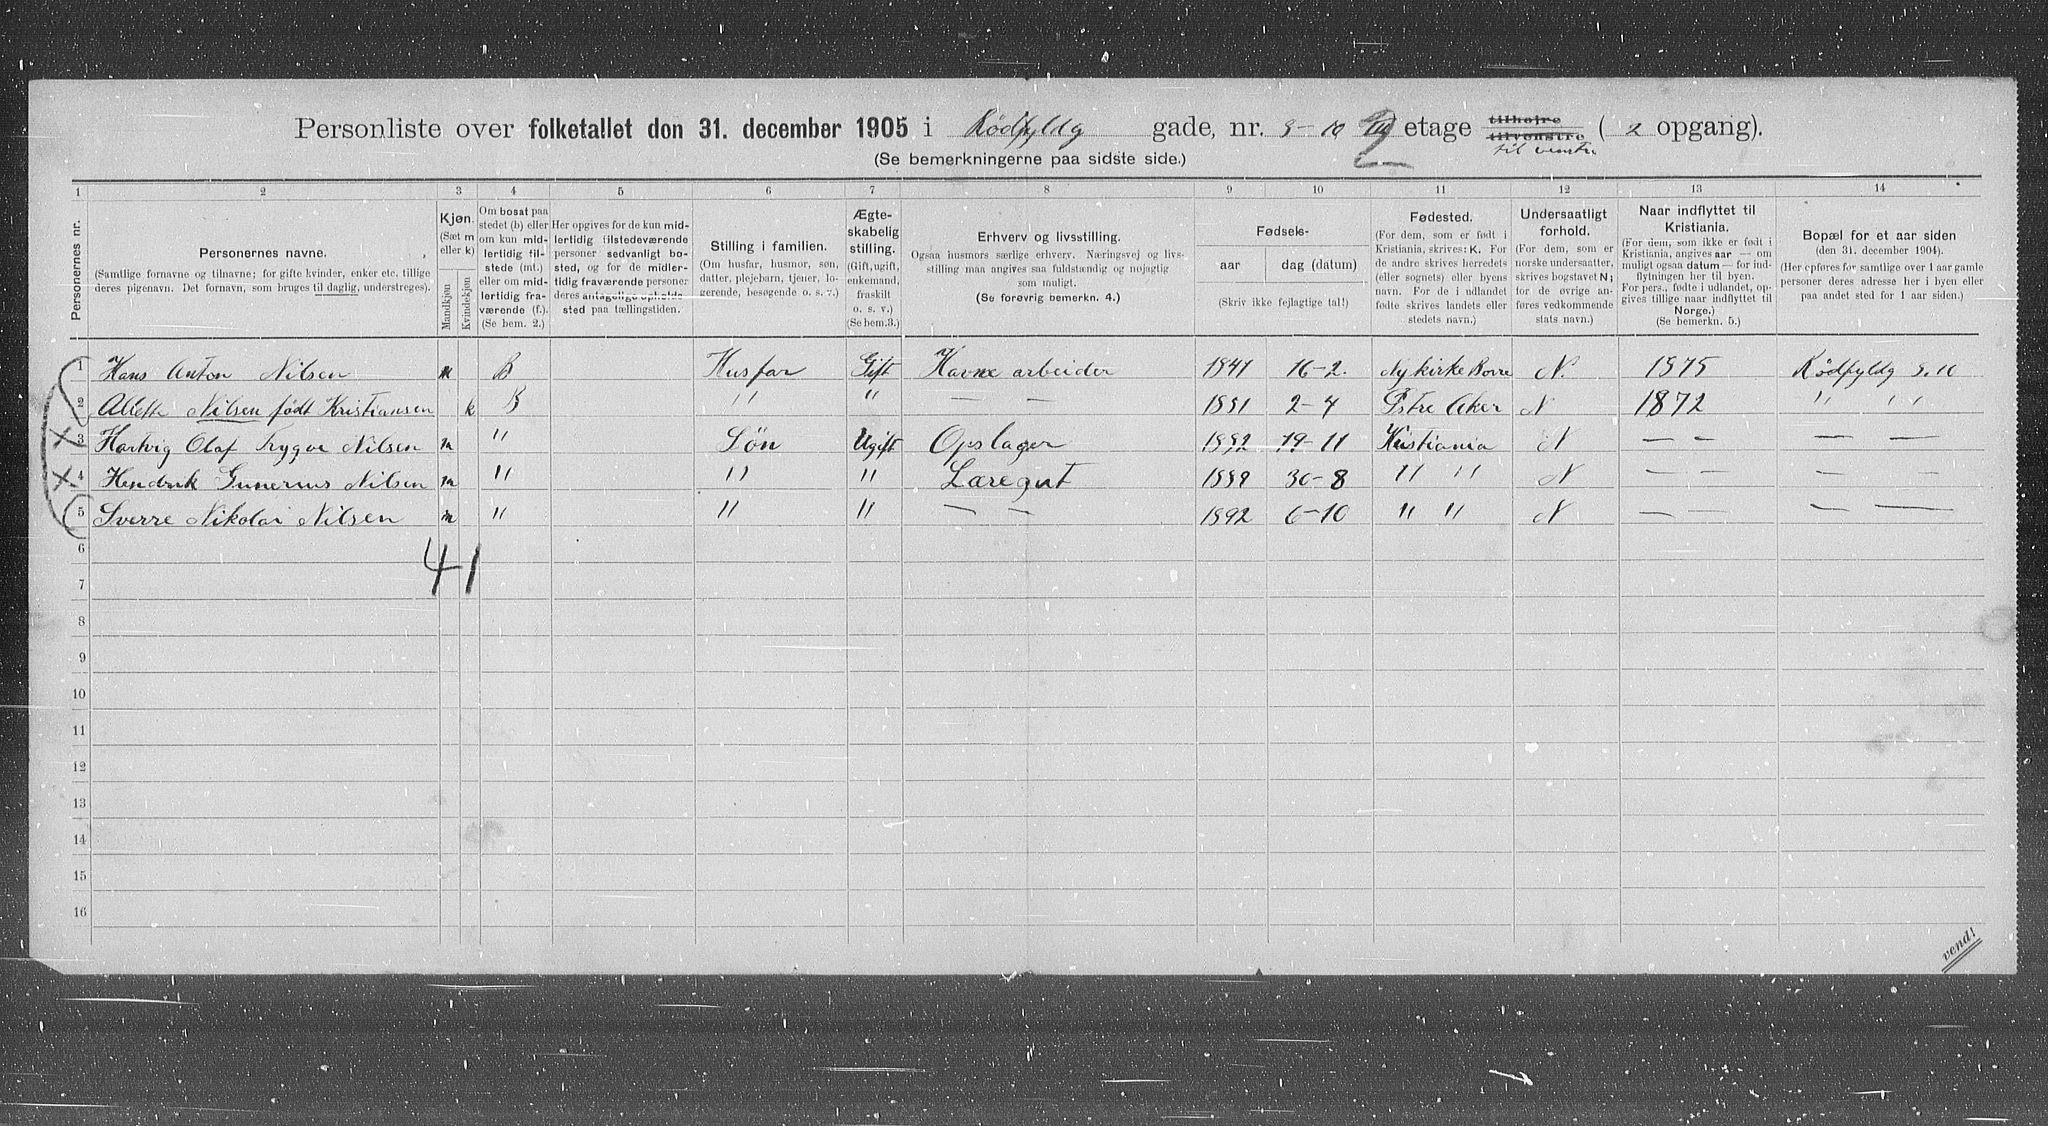 Personliste over folketallet den 31. december 1905 i Rödfyldg gade, nr. 9-10 etage tilhøire tilvenstre til venstre ( 2 opgang).
(Se bemerkningerne paa sidste side.)
1 2 3 4 5 6 7 8 9 10 11 12 13 14
Personernes nr.
Personernes navne.
(Samtlige fornavne og tilnavne; for gifte kvinder, enker etc. tillige
deres pigenavn. Det fornavn, som bruges til daglig, understreges).
Kjøn.
(Sæt m
eller k)
Mandkjøn
Kvindekjøn
Om bosat paa
stedet (b) eller
om kun mid-
lertidig til-
stede (mt.)
eller om mid-
lertidig fra-
værende (f.).
(Se bem. 2.)
Her opgives for de kun mid-
lertidig tilstedeværende
personer sedvanligt bo-
sted, og for de midler-
tidig fraværende personer
deres antagelige opholds-
sted paa tællingstiden.
Stilling i familien.
(Om husfar, husmor, søn,
datter, plejebarn, tjener, lo-
gerende, besøgende o. s. v.)
Ægte-
skabelig
stilling.
(Gift, ugift,
enkemand,
fraskilt
o. s. v.)
(Se bem. 3.)
Erhverv og livsstilling.
Ogsaa husmors særlige erhverv. Næringsvej og livs-
stilling maa angives saa fuldstændig og nøjagtig
som muligt.
(Se forøvrig bemerkn. 4.)
Fødsels-
aar
dag (datum)
(Skriv ikke fejlagtige tal!)
Fødested.
(For dem, som er født i
Kristiania, skrives: K. For
de andre skrives herredets
(eller sognets) eller byens
navn. For de i udlandet
fødte skrives landets eller
stedets navn.)
Undersaatligt
forhold.
(For dem, som er
norske undersaatter,
skrives bogstavet N;
for de øvrige an-
føres vedkommende
stats navn.)
Naar indflyttet til
Kristiania.
(For dem, som ikke er født i
Kristiania, angives aar — om
muligt ogsaa datum — for ind-
flytningen her til byen.
For pers., fødte i udlandet, op-
gives tillige naar indflyttet til
Norge.)
(Se bemerkn. 5.)
Bopæl for et aar siden
(den 31. december 1904).
(Her opføres for samtlige over 1 aar gamle
personer deres adresse her i byen eller
paa andet sted for 1 aar siden.)
1 Hans Anton Nilsen m B Husfar Gift Havne arbeider 1841 16-2. Nykirke Borre N. 1875 Rödfyldg 9.10
2 Alette Nilsen födt Kristiansen k B " " — — 1851 2-4 Östre Aker N 1872 " "
3 Hartvig Olaf Trygve Nilsen m " Sön Ugift Opslager 1882 19-11 Kristiania N — — — —
4 Hendrik Gunerius Nilsen m " " " Læregut 1889 30-8 " " N — — — —
5 Sverre Nikolai Nilsen m " " " — — 1892 6-10 " " N — — — —
6
4 1
7
8
9
10
11
12
13
14
15
16
vend!